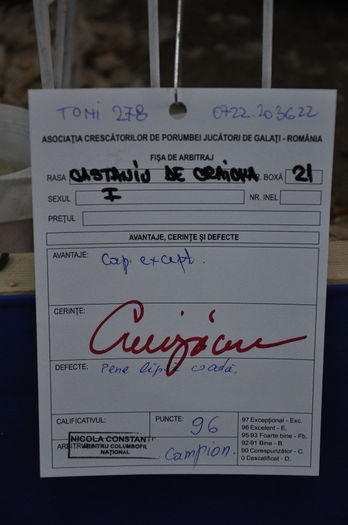 TONI 278 0722.203622
ASOCIAȚIA CRESCĂTORILOR DE PORUMBEI JUCĂTORI DE GALAȚI - ROMÂNIA
FIȘA DE ARBITRAJ
RASA CASTANIU DE CRAIOVA NR. BOXĂ 21
SEXUL I NR. INEL
PREȚUL
AVANTAJE, CERINȚE ȘI DEFECTE
AVANTAJE: Cap. except.
CERINȚE:
DEFECTE: Pene lipsă coadă.
CALIFICATIVUL: PUNCTE: 96
97 Excepțional - Exc.
96 Excelent - E.
95-93 Foarte bine - Fb.
92-91 Bine - B.
90 Corespunzător - C.
0 Descalificat - D.
ARBITRU
NICOLA CONSTANTIN
ARBITRU COLUMBOFIL
NAȚIONAL
Campion.